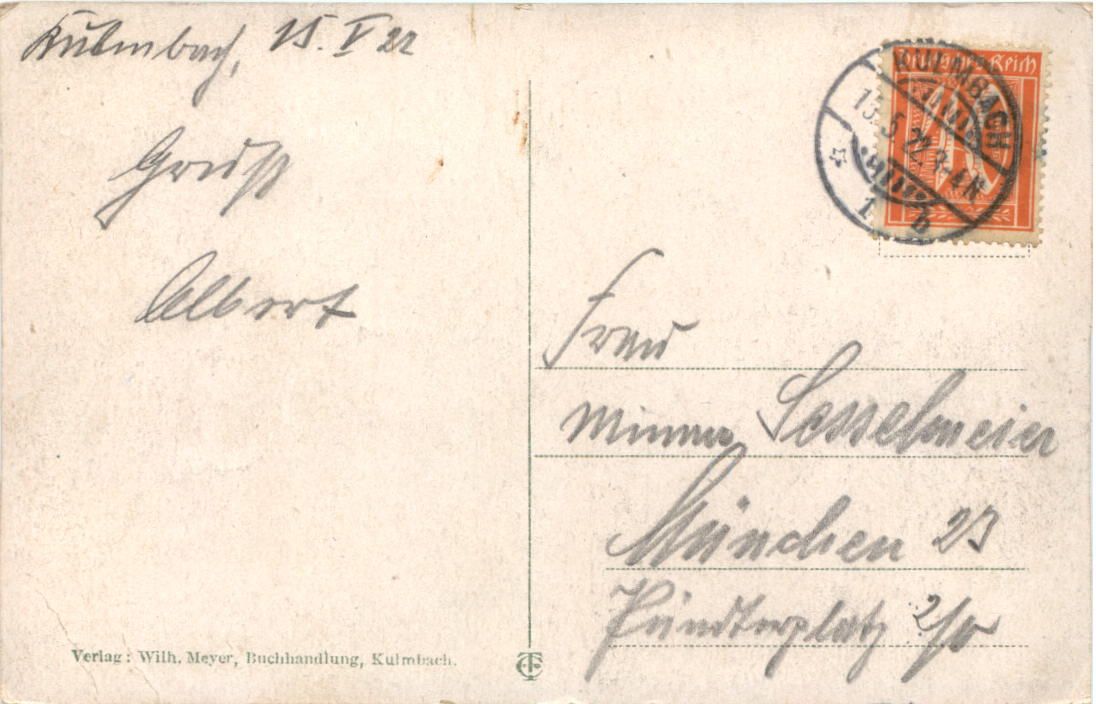 Kulmbach, 15. V 22
Gruß
Albert
Deutsches Reich
KULMBACH
15.5.22. 3-4 N
1 b
Frau
Minna Sesselmeier
München 23
Pündterplatz 2/0
Verlag: Wilh. Meyer, Buchhandlung, Kulmbach.